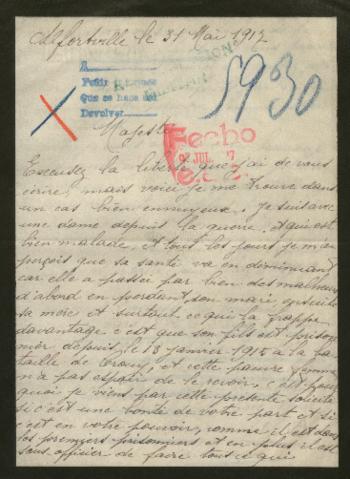 Alfortville le 31 Mai 1917
A
Pedir informes
Que se hace del
Devolver
5930
Majesté
Fecho
JUL. 7
Excusez la liberté que j'ai de vous
écrire, mais voici je me trouve dans
un cas bien ennuyeux, je suis avec
une dame depuis la guerre, et qui est
bien malade, et tout les jours je m'a
perçois que sa santé va en diminuant
car elle a passée par bien des malheurs
d'abord en perdant son mari, ensuite
sa mère, et surtout ce qui la frappe
davantage c'est que son fils est prison
nier depuis le 13 janvier 1915 à la ba
taille de Crouy, et cette pauvre femme
n'a pas espoir de le revoir, c'est pour
quoi je viens par cette présente sollicité
si c'est une bonté de votre part et si
c'est en votre pouvoir, comme il est dans
les premiers prisonniers et en plus il est
sous officier de faire tout ce qui